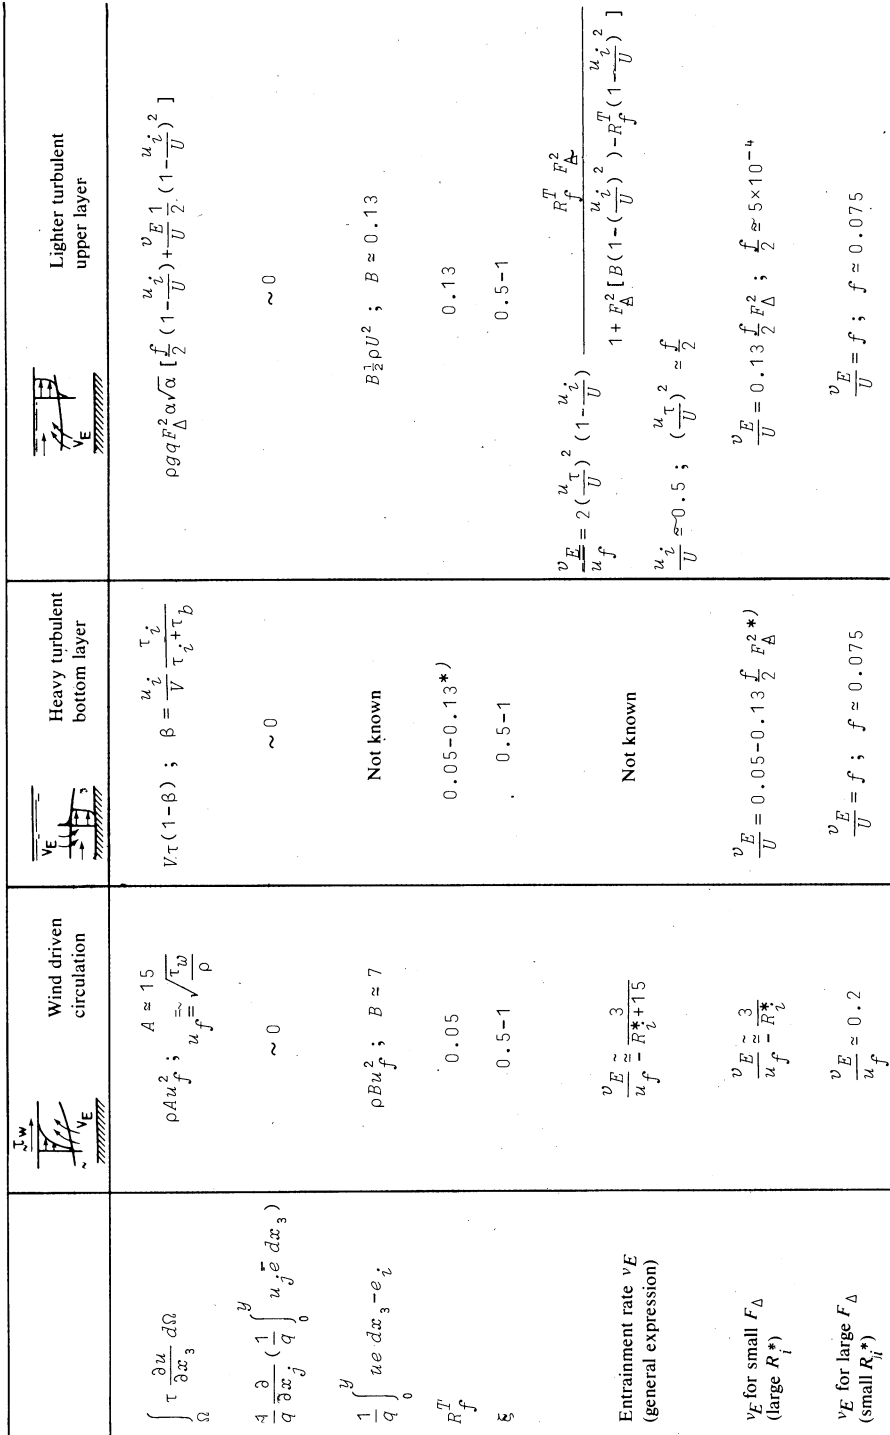 Wind driven circulation | Heavy turbulent bottom layer | Lighter turbulent upper layer
τ_w v_E | v_E | v_E
∫_Ω τ ∂u/∂x_3 dΩ | ρAu_f^2 ; A ≃ 15 u_f ≅ √(τ_w/ρ) | V.τ(1-β) ; β = u_i/V τ_i/(τ_i+τ_b) | ρgqF_Δ^2 α√α [f/2 (1-u_i/U)+v_E/U 1/2 (1-u_i/U)^2 ]
1/q ∂/∂x_j (1/q ∫_0^y u_j e dx_3) | ~0 | ~0 | ~0
1/q ∫_0^y ue dx_3-e_i | ρBu_f^2 ; B ≃ 7 | Not known | B½ρU^2 ; B ≃ 0.13
R_f^T | 0.05 | 0.05-0.13*) | 0.13
ξ | 0.5-1 | 0.5-1 | 0.5-1
Entrainment rate v_E (general expression) | v_E/u_f ≃ 3/(R_i^*+15) | Not known | v_E/u_f = 2(u_τ/U)^2 (1-u_i/U) R_f^T F_Δ^2 / (1+F_Δ^2 [B(1-(u_i/U)^2 )-R_f^T(1-u_i/U)^2 ])
u_i/U ≃0.5 ; (u_τ/U)^2 ≃ f/2
v_E for small F_Δ (large R_i^*) | v_E/u_f ≃ 3/R_i^* | v_E/U = 0.05-0.13 f/2 F_Δ^2 *) | v_E/U = 0.13 f/2 F_Δ^2 ; f/2 ≃ 5×10^-4
v_E for large F_Δ (small R_i^*) | v_E/u_f ≃ 0.2 | v_E/U = f ; f ≃ 0.075 | v_E/U = f ; f ≃ 0.075